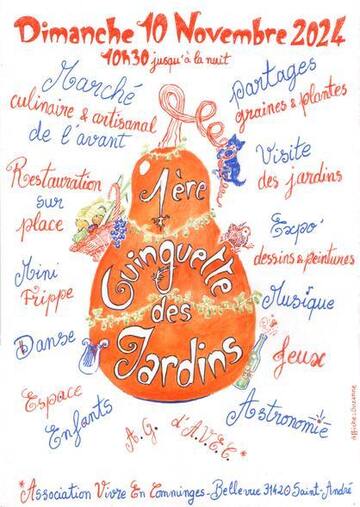 Dimanche 10 Novembre 2024
10h30 jusqu'à la nuit
Marché
culinaire & artisanal
de l'avant
partages
graines & plantes
Restauration
sur
place
Visite
des jardins
1ère
Guinguette
des
Jardins
Mini
Frippe
Expo'
dessins & peintures
Danse
Musique
Espace
Enfants
Jeux
Astronomie
A.G. d'A.V.E.C.*
Affiche: Suzanne
*Association Vivre En Comminges - Bellevue 31420 Saint-André